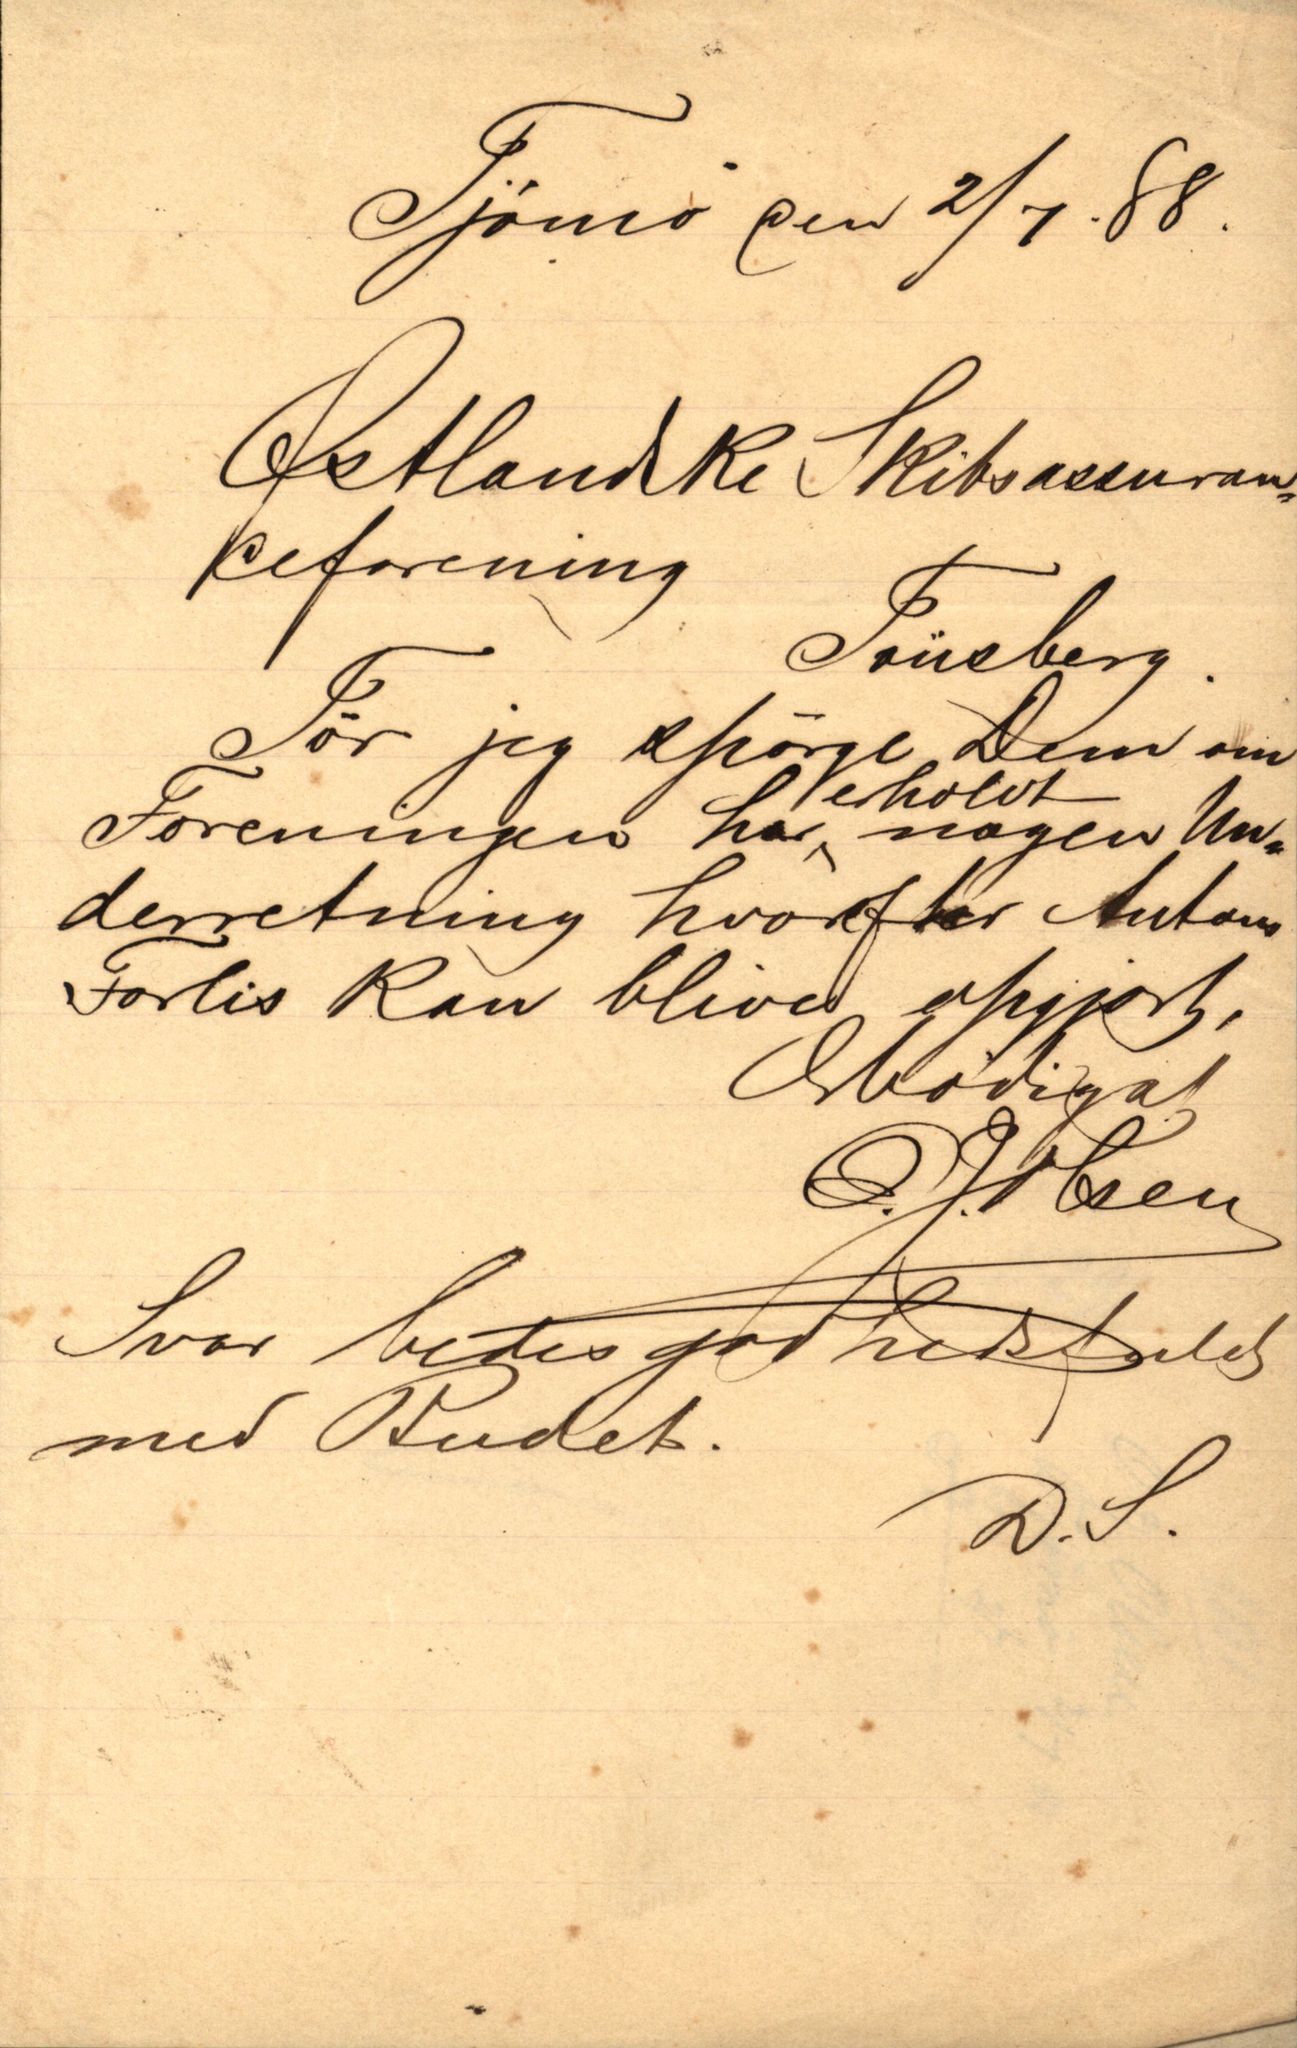 Tjömö den 2/7. 88.
Østlandske Skibsassuran=
ceforening
Tönsberg.
Tör jeg spörge Dem om
Foreningen har erholdt nogen Un=
derretning hvorefter Antons
Forlis kan blive opgjort.
Ærbödigst
O. J. Olsen
Svar bedes godhedsfuldt
med Budet.
D. S.